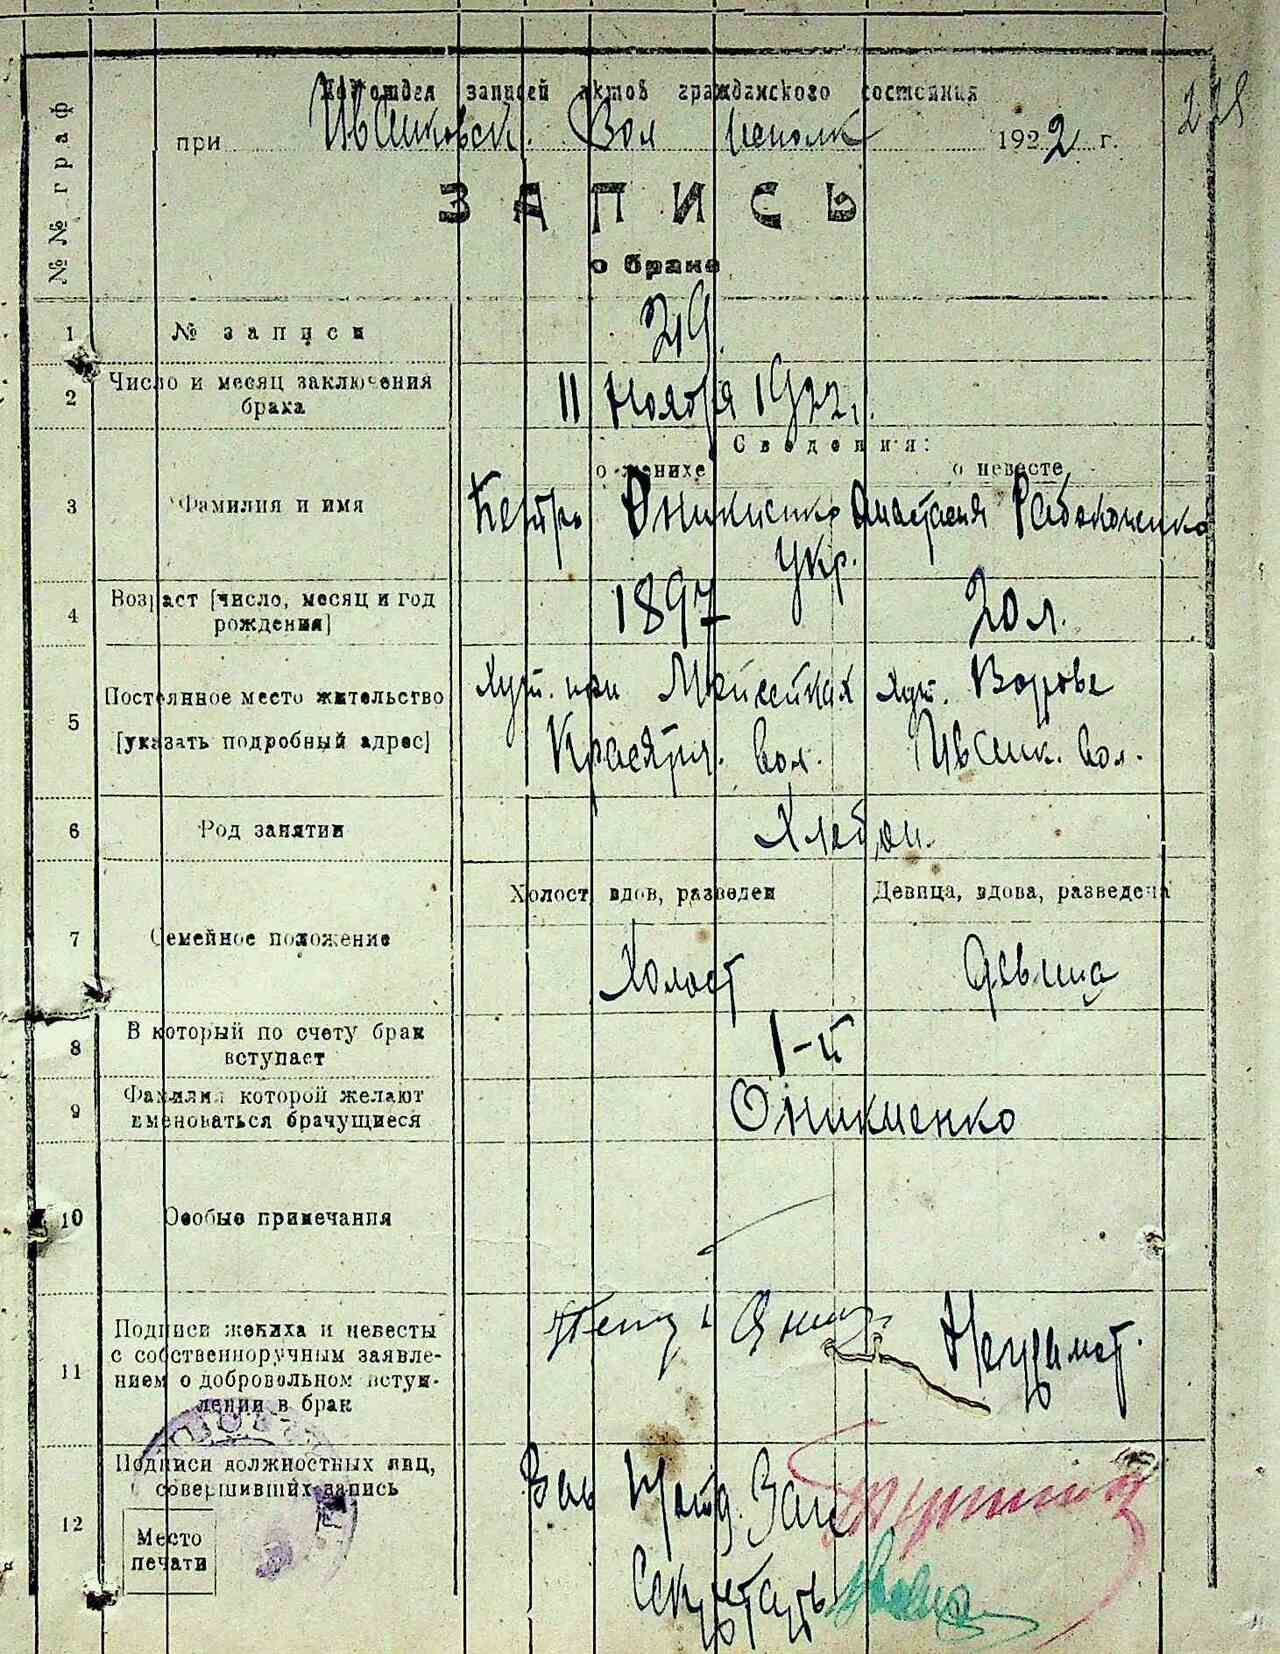 Подотдел записей актов гражданского состояния
при Ивсинковск. Вол исполк 1922 г.
228
№№ граф
ЗАПИСЬ
о браке
1 № записи 29
2 Число и месяц заключения брака 11 Ноября 1922 г.
Сведения:
о женихе о невесте
3 Фамилия и имя Петро Оникиенко Анастасия Рабоконенко
укр.
4 Возраст [число, месяц и год рождения] 1897 20 л.
5 Постоянное место жительство [указать подробный адрес]
Хут. при хут. Ворове
Красяри. вол. вол.
6 Род занятии Хлебоп.
Холост, вдов, разведен Девица, вдова, разведена
7 Семейное положение Холост Девица
8 В который по счету брак вступает 1-й
9 Фамилия которой желают именоваться брачущиеся Оникиенко
10 Особые примечания
11 Подписи жениха и невесты с собственноручным заявлением о добровольном вступлении в брак Неграмот.
12 Подписи должностных лиц, совершивших запись
Место печати
Секретарь